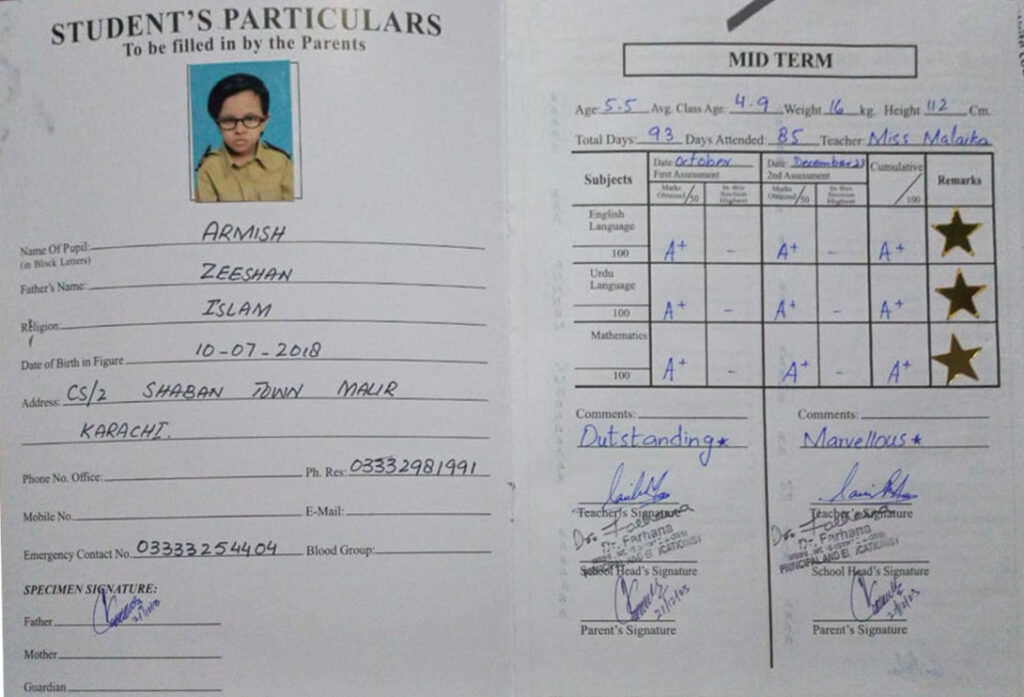 STUDENT'S PARTICULARS
To be filled in by the Parents
Name Of Pupil: ARMISH
(in Block Letters)
Father's Name: ZEESHAN
Religion ISLAM
Date of Birth in Figure 10-07-2018
Address: CS/2 SHABAN TOWN MALIR
KARACHI.
Phone No. Office: Ph. Res: 03332981991
Mobile No. E-Mail:
Emergency Contact No. 03333254404 Blood Group:
SPECIMEN SIGNATURE:
Father
Mother
Guardian
MID TERM
Age: 5.5 Avg. Class Age: 4.9 Weight 16 kg. Height 112 Cm.
Total Days: 93 Days Attended: 85 Teacher Miss Malaika
Subjects Date October First Assessment Date December 2nd Assessment Cumulative Remarks
Marks Obtained/50 In this Section Highest Marks Obtained/50 In this Section Highest /100
English Language
100 A+ - A+ - A+
Urdu Language
100 A+ - A+ - A+
Mathematics
100 A+ - A+ - A+
Comments: Outstanding
Teacher's Signature
Dr. Farhana
School Head's Signature
21/12/23
Parent's Signature
Comments: Marvellous
Teacher's Signature
Dr. Farhana
PRINCIPAL AND
School Head's Signature
Parent's Signature